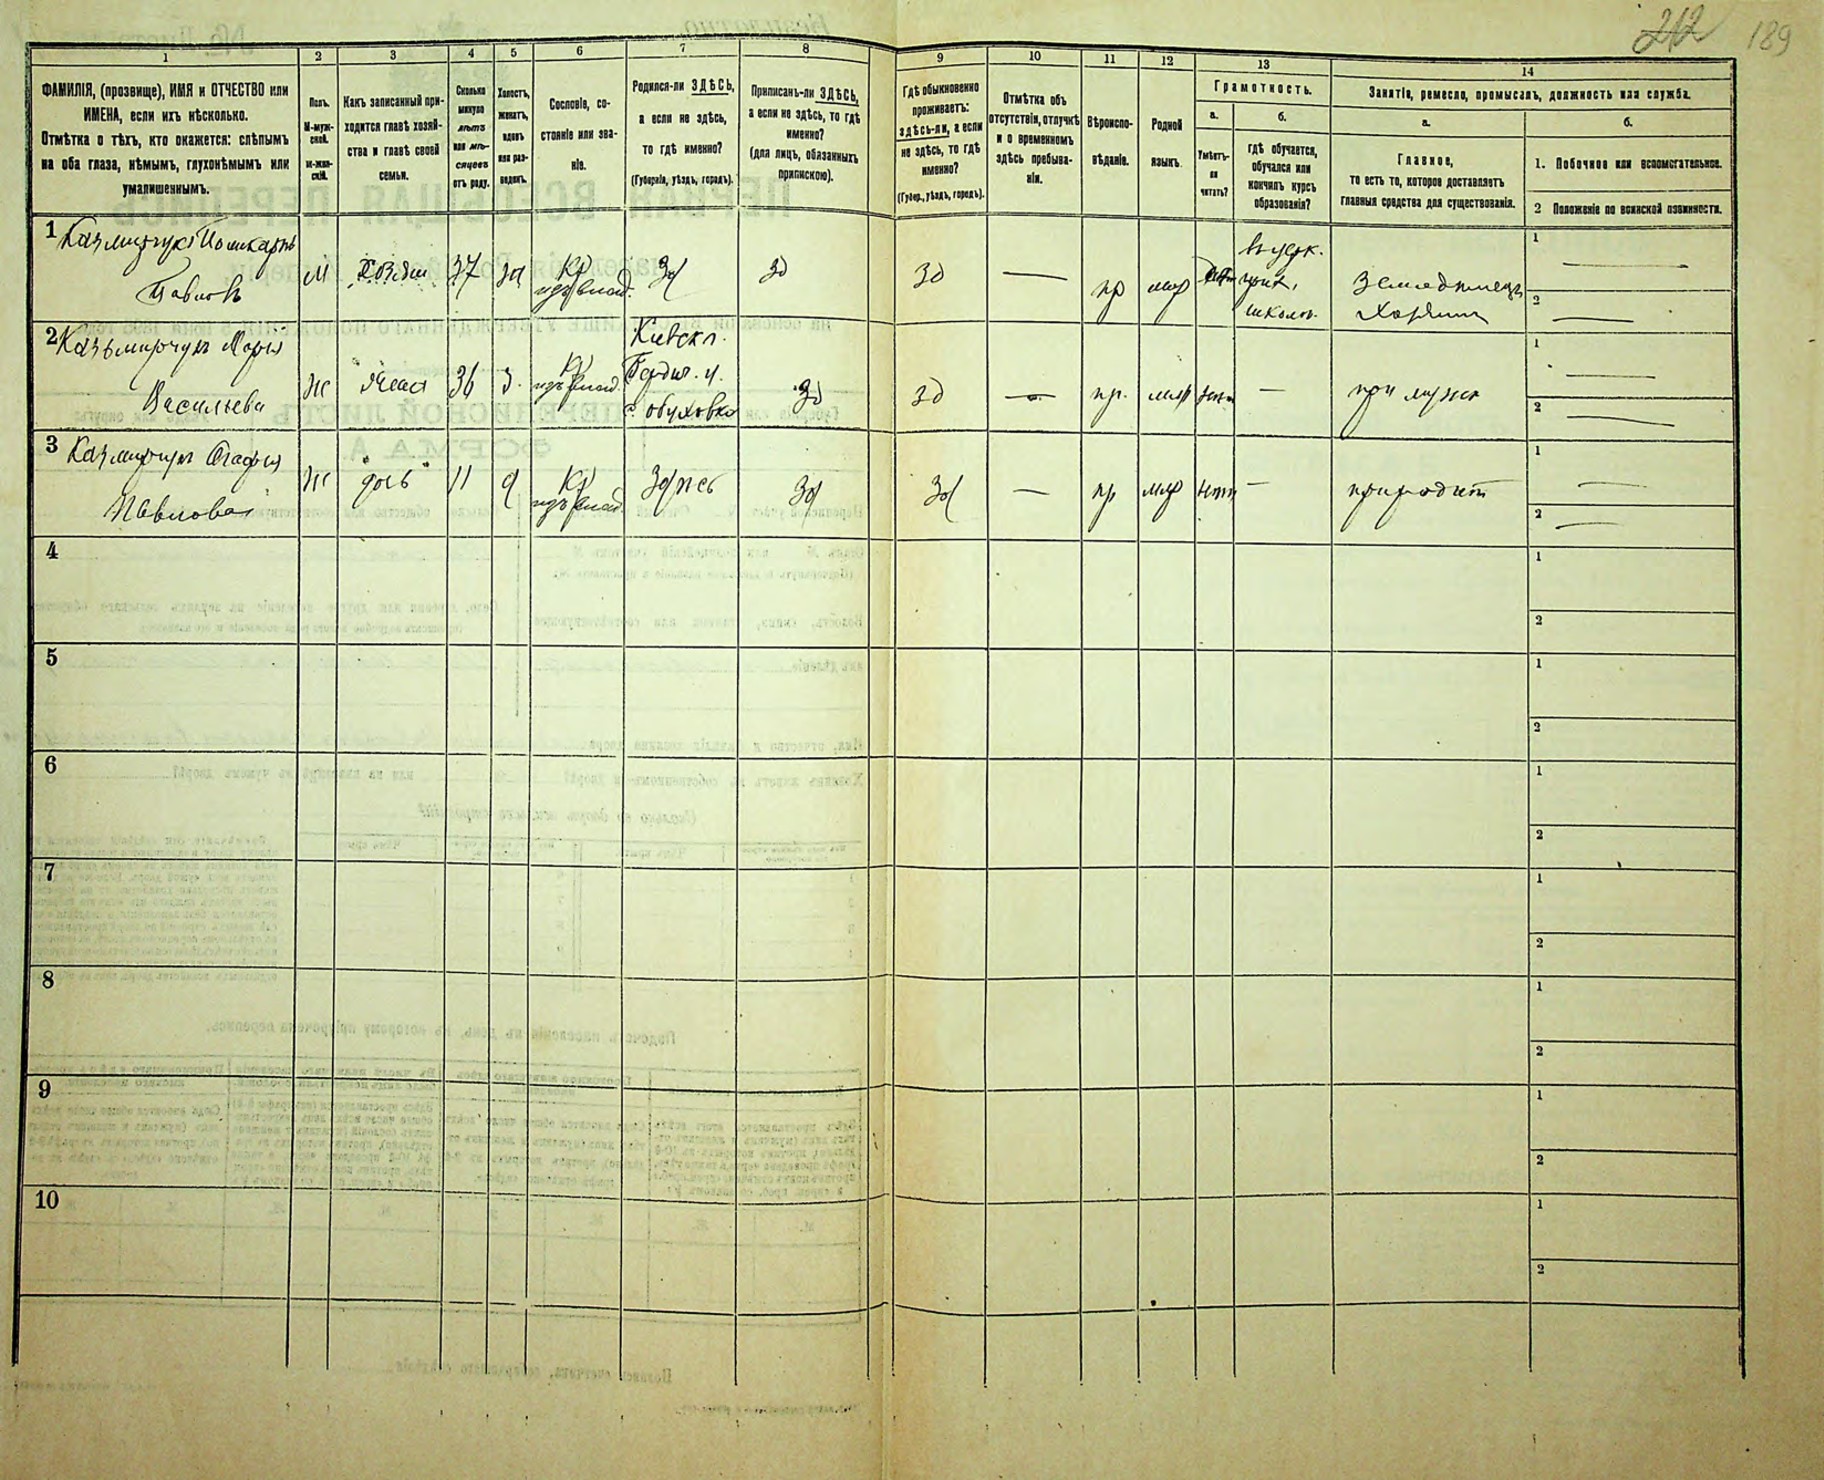 212 189
1 2 3 4 5 6 7 8 9 10 11 12 13 14
ФАМИЛІЯ, (прозвище), ИМЯ и ОТЧЕСТВО или
ИМЕНА, если ихъ нѣсколько.
Отмѣтка о тѣхъ, кто окажется: слѣпымъ
на оба глаза, нѣмымъ, глухонѣмымъ или
умалишеннымъ.
Полъ.
М-муж-
ской.
ж-жен-
скій.
Какъ записанный при-
ходится главѣ хозяй-
ства и главѣ своей
семьи.
Сколько
минуло
лѣтъ
или мѣ-
сяцевъ
отъ роду.
Холостъ,
женатъ,
вдовъ
или раз-
веденъ.
Сословіе, со-
стояніе или зва-
ніе.
Родился-ли ЗДѢСЬ,
а если не здѣсь,
то гдѣ именно?
(Губернія, уѣздъ, городъ).
Приписанъ-ли ЗДѢСЬ,
а если не здѣсь, то гдѣ
именно?
(для лицъ, обязанныхъ
припискою).
Гдѣ обыкновенно
проживаетъ:
здѣсь-ли, а если
не здѣсь, то гдѣ
именно?
(Губер., уѣздъ, городъ).
Отмѣтка объ
отсутствіи, отлучкѣ
и о временномъ
здѣсь пребыва-
ніи.
Вѣроиспо-
вѣданіе.
Родной
языкъ.
Грамотность.
а.
Умѣетъ-
ли
читать?
б.
гдѣ обучается,
обучался или
кончилъ курсъ
образованія?
Занятіе, ремесло, промыселъ, должность или служба.
а.
Главное,
то есть то, которое доставляетъ
главныя средства для существованія.
б.
1. Побочное или вспомогательное.
2 Положеніе по воинской повинности.
1 Казмирчукъ Поликарпъ
Павловъ
М
хозяин
37
жн
Кр
изъ влад.
Зд
Зд
Зд
—
пр
мцр
въ церк.
прих.
школѣ.
Земледѣлецъ
Хозяин
1 —
2 —
2 Казьмирчукъ Марія
Васильева
Ж
жена
36
З.
Кр
изъ влад.
Кіевск г.
Бердич. у.
с. обуховка
Зд
Зд
—
пр.
млр
нѣтъ
—
при мужѣ
1 —
2 —
3 Казмирчукъ Агафія
Павловая
Ж
дочь
11
д
Кр
изъ влад.
Здѣсь
Зд
Зд
—
пр
млр
нѣтъ
—
при родит
1 —
2 —
4
1
2
5
1
2
6
1
2
7
1
2
8
1
2
9
1
2
10
1
2